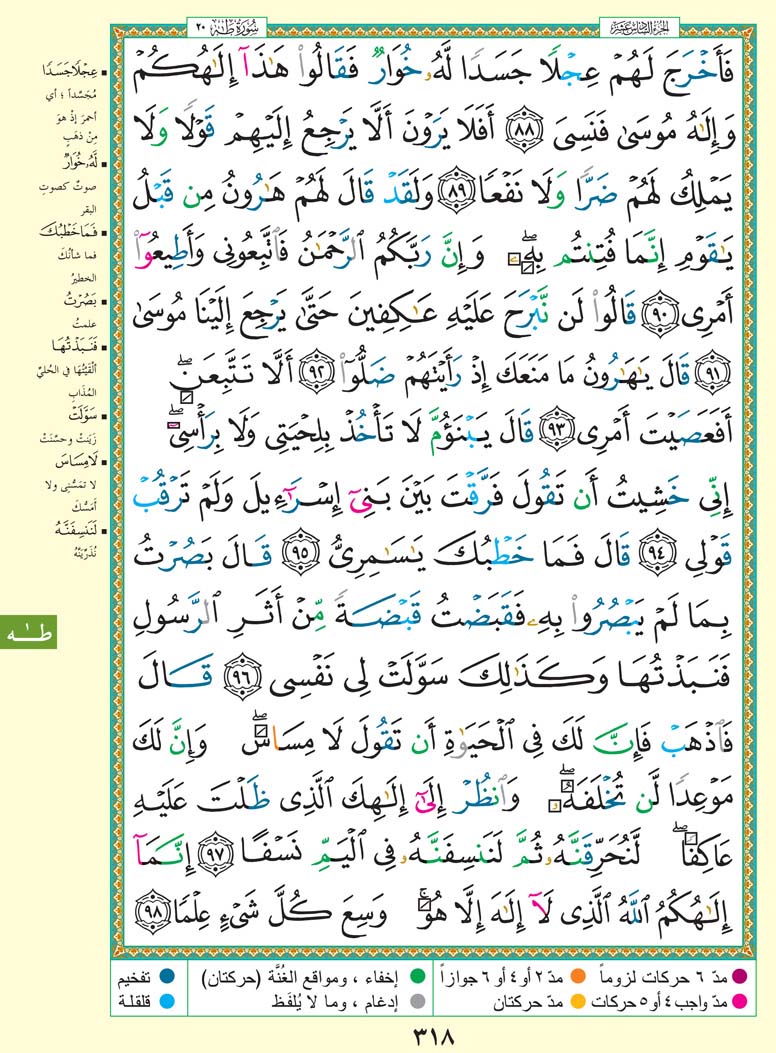 الجزء السادس عشر
سورة طه ٢٠
فَأَخْرَجَ لَهُمْ عِجْلًا جَسَدًا لَّهُۥ خُوَارٌ فَقَالُوا۟ هَـٰذَآ إِلَـٰهُكُمْ
وَإِلَـٰهُ مُوسَىٰ فَنَسِىَ ﴿٨٨﴾ أَفَلَا يَرَوْنَ أَلَّا يَرْجِعُ إِلَيْهِمْ قَوْلًا وَلَا
يَمْلِكُ لَهُمْ ضَرًّا وَلَا نَفْعًا ﴿٨٩﴾ وَلَقَدْ قَالَ لَهُمْ هَـٰرُونُ مِن قَبْلُ
يَـٰقَوْمِ إِنَّمَا فُتِنتُم بِهِۦ ۖ وَإِنَّ رَبَّكُمُ ٱلرَّحْمَـٰنُ فَٱتَّبِعُونِى وَأَطِيعُوٓا۟
أَمْرِى ﴿٩٠﴾ قَالُوا۟ لَن نَّبْرَحَ عَلَيْهِ عَـٰكِفِينَ حَتَّىٰ يَرْجِعَ إِلَيْنَا مُوسَىٰ
﴿٩١﴾ قَالَ يَـٰهَـٰرُونُ مَا مَنَعَكَ إِذْ رَأَيْتَهُمْ ضَلُّوٓا۟ ﴿٩٢﴾ أَلَّا تَتَّبِعَنِ ۖ
أَفَعَصَيْتَ أَمْرِى ﴿٩٣﴾ قَالَ يَبْنَؤُمَّ لَا تَأْخُذْ بِلِحْيَتِى وَلَا بِرَأْسِىٓ ۖ
إِنِّى خَشِيتُ أَن تَقُولَ فَرَّقْتَ بَيْنَ بَنِىٓ إِسْرَٰٓءِيلَ وَلَمْ تَرْقُبْ
قَوْلِى ﴿٩٤﴾ قَالَ فَمَا خَطْبُكَ يَـٰسَـٰمِرِىُّ ﴿٩٥﴾ قَالَ بَصُرْتُ
بِمَا لَمْ يَبْصُرُوا۟ بِهِۦ فَقَبَضْتُ قَبْضَةً مِّنْ أَثَرِ ٱلرَّسُولِ
فَنَبَذْتُهَا وَكَذَٰلِكَ سَوَّلَتْ لِى نَفْسِى ﴿٩٦﴾ قَالَ
فَٱذْهَبْ فَإِنَّ لَكَ فِى ٱلْحَيَوٰةِ أَن تَقُولَ لَا مِسَاسَ ۖ وَإِنَّ لَكَ
مَوْعِدًا لَّن تُخْلَفَهُۥ ۖ وَٱنظُرْ إِلَىٰٓ إِلَـٰهِكَ ٱلَّذِى ظَلْتَ عَلَيْهِ
عَاكِفًا ۖ لَّنُحَرِّقَنَّهُۥ ثُمَّ لَنَنسِفَنَّهُۥ فِى ٱلْيَمِّ نَسْفًا ﴿٩٧﴾ إِنَّمَآ
إِلَـٰهُكُمُ ٱللَّهُ ٱلَّذِى لَآ إِلَـٰهَ إِلَّا هُوَ ۚ وَسِعَ كُلَّ شَىْءٍ عِلْمًا ﴿٩٨﴾
عِجْلًا جَسَدًا
مُجَسَّداً ؛ أي
أحمرَ إذْ هوَ
مِنْ ذهَبٍ
لَّهُۥ خُوَارٌ
صوتٌ كصوتِ
البقر
فَمَا خَطْبُكَ
فما شأنُكَ
الخطيرُ
بَصُرْتُ
علمتُ
فَنَبَذْتُهَا
ألْقَيْتُهَا في الحُلِيِّ
المُذَابِ
سَوَّلَتْ
زيّنتْ وحسّنتْ
لَا مِسَاسَ
لا تمسُّنِي ولا
أَمَسُّكَ
لَنَنسِفَنَّهُ
نُذَرِّيَنَّهُ
طـٰه
مدّ ٦ حركات لزوماً
مدّ ٢ أو ٤ أو ٦ جوازاً
إخفاء ، ومواقع الغُنَّة (حركتان)
تفخيم
مدّ واجب ٤ أو ٥ حركات
مدّ حركتان
إدغام ، وما لا يُلفَظ
قلقلة
٣١٨